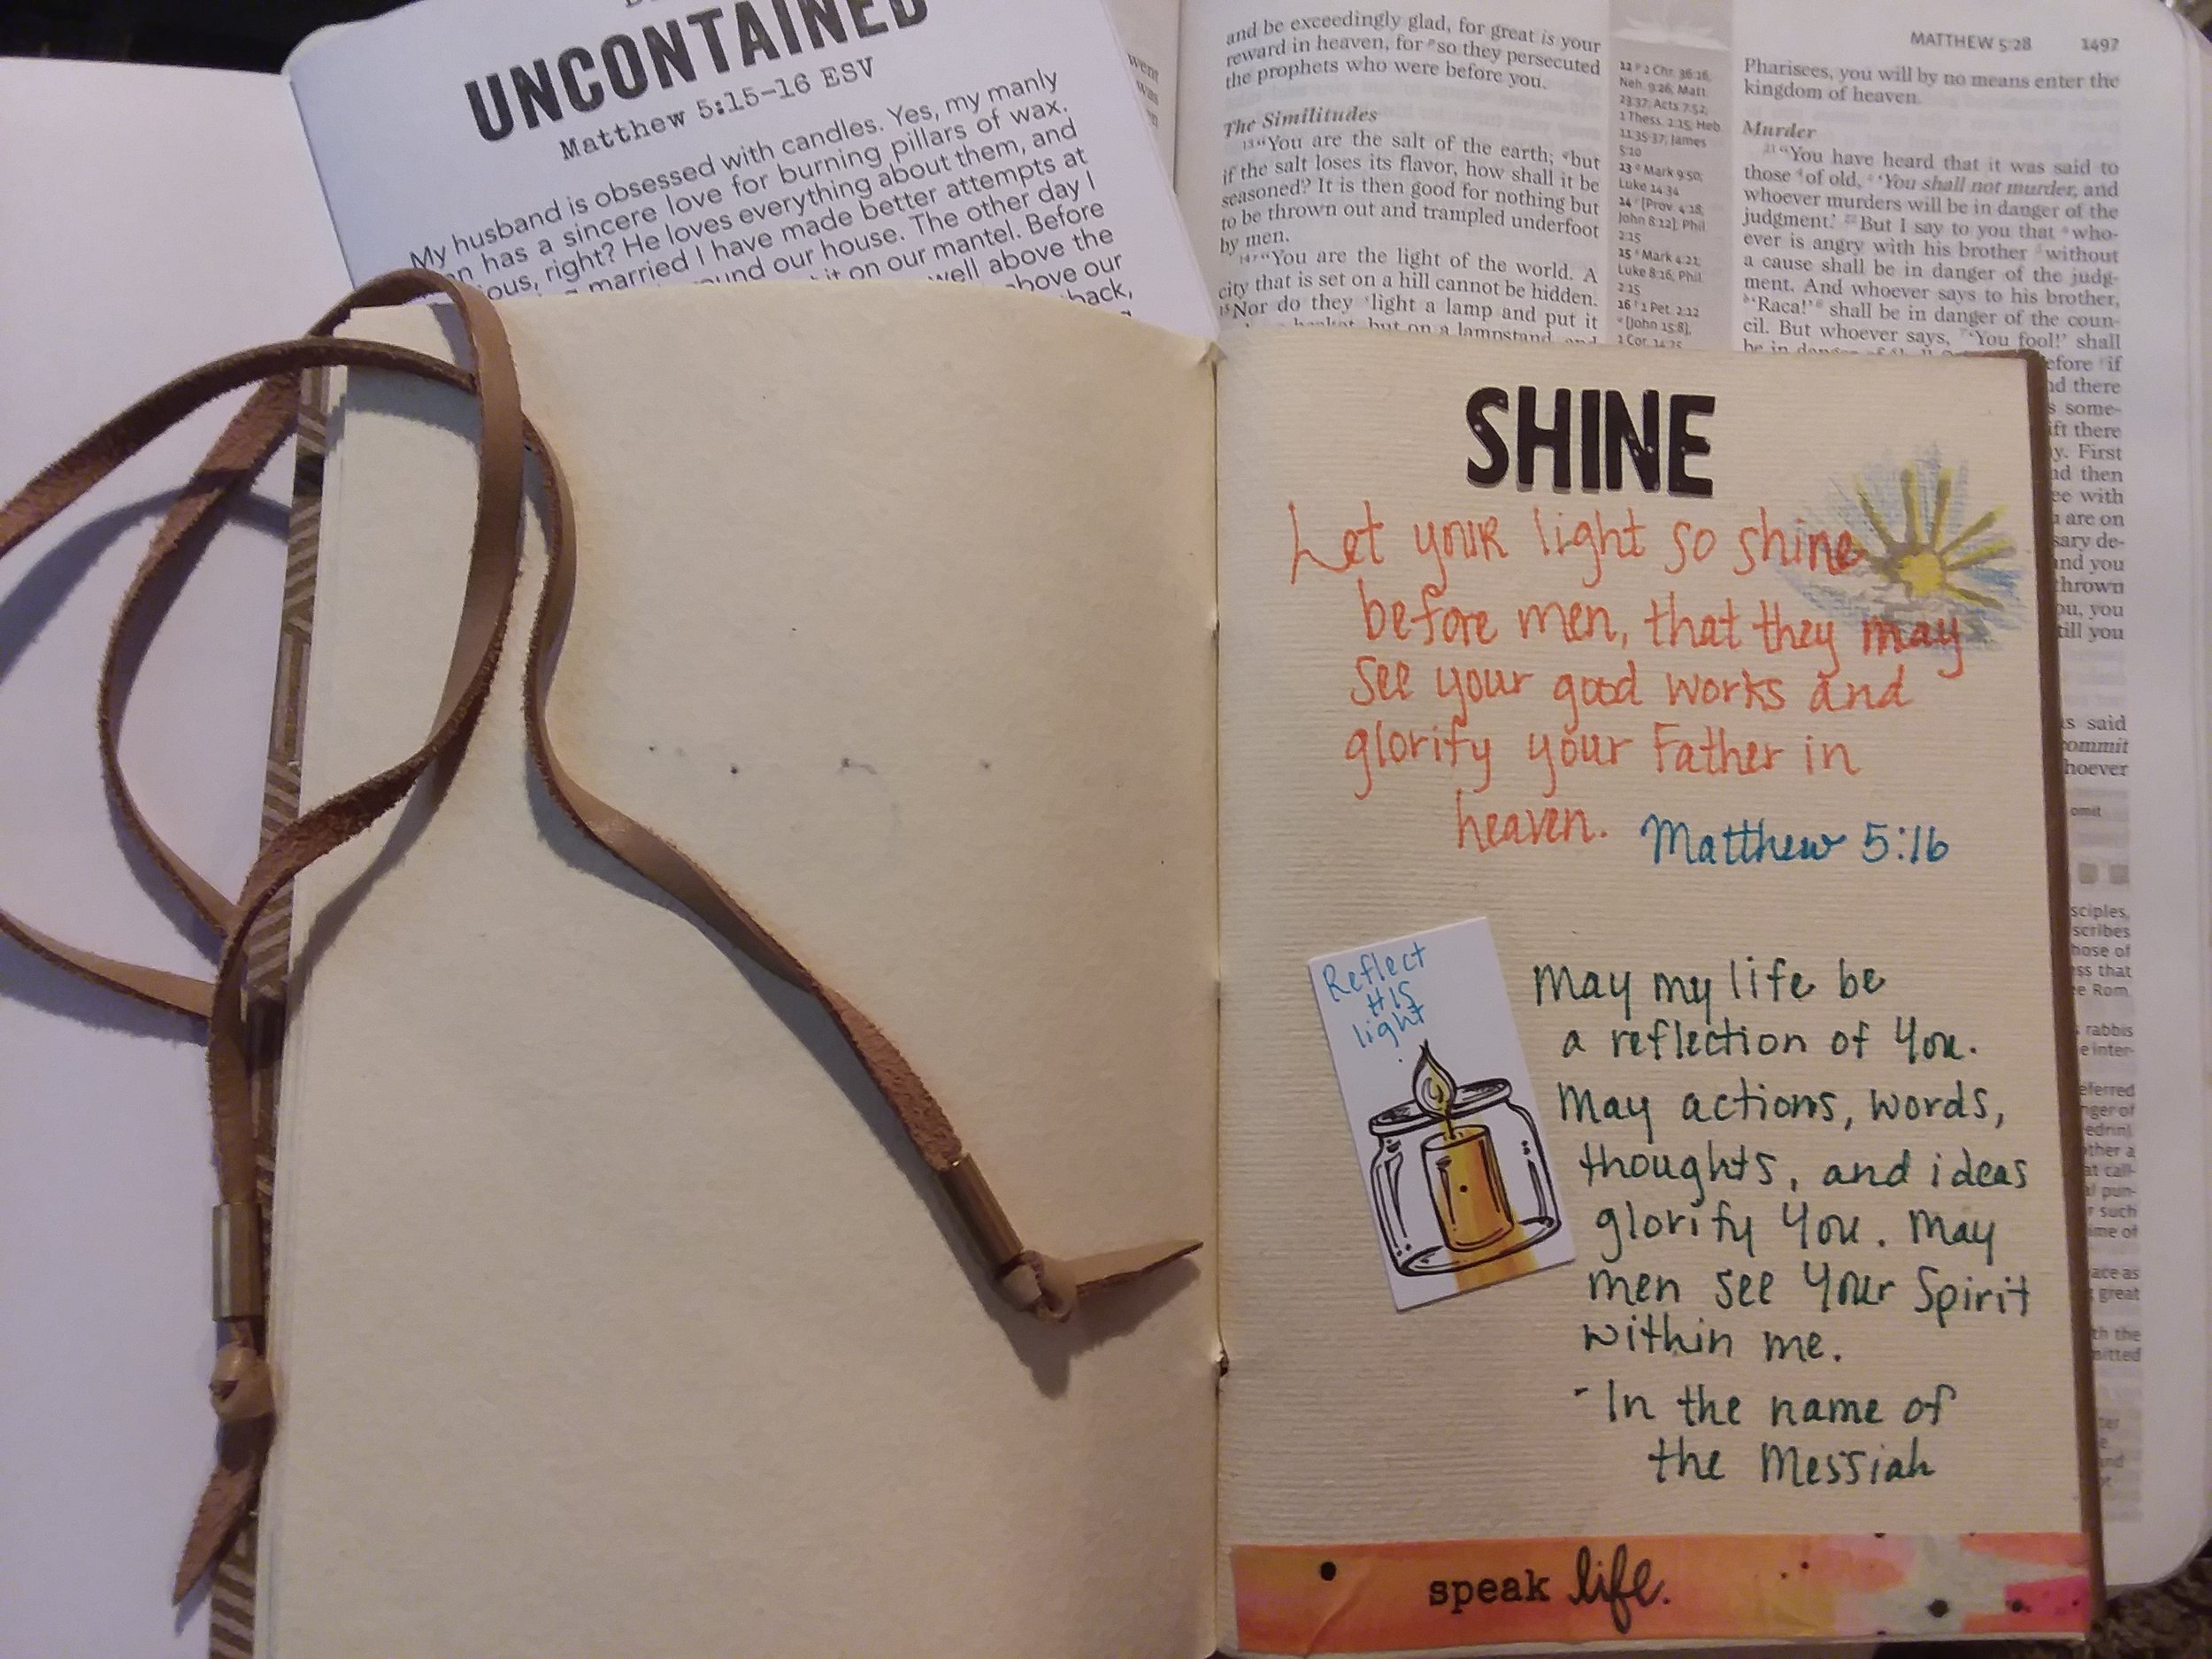 UNCONTAINED
Matthew 5:15–16 ESV
My husband is obsessed with candles. Yes, my manly
has a sincere love for burning pillars of wax.
right? He loves everything about them, and
married I have made better attempts at
our house. The other day I
it on our mantel. Before
well above the
above our
back,
and be exceedingly glad, for great is your
reward in heaven, for so they persecuted
the prophets who were before you.
The Similitudes
13“You are the salt of the earth; but
if the salt loses its flavor, how shall it be
seasoned? It is then good for nothing but
to be thrown out and trampled underfoot
by men.
14“You are the light of the world. A
city that is set on a hill cannot be hidden.
15Nor do they light a lamp and put it
but on a lampstand, and
12 2 Chr. 36:16;
Neh. 9:26; Matt.
23:37; Acts 7:52;
1 Thess. 2:15; Heb.
11:35-37; James
5:10
13 Mark 9:50;
Luke 14:34
14 [Prov. 4:18;
John 8:12]; Phil.
2:15
15 Mark 4:21;
Luke 8:16; Phil.
2:15
16 1 Pet. 2:12
[John 15:8];
1 Cor. 14:25
MATTHEW 5:28 1497
Pharisees, you will by no means enter the
kingdom of heaven.
Murder
21“You have heard that it was said to
those of old, ‘You shall not murder, and
whoever murders will be in danger of the
judgment.’ 22But I say to you that who-
ever is angry with his brother without
a cause shall be in danger of the judg-
ment. And whoever says to his brother,
‘Raca!’ shall be in danger of the coun-
cil. But whoever says, ‘You fool!’ shall
be in
if
there
some-
there
First
then
with
are on
de-
and you
thrown
you
till you
said
commit
whoever
omit
SHINE
Let your light so shine
before men, that they may
see your good works and
glorify your Father in
heaven. Matthew 5:16
Reflect
HIS
light
May my life be
a reflection of You.
May actions, words,
thoughts, and ideas
glorify You. May
men see Your Spirit
within me.
- In the name of
the Messiah
speak life.